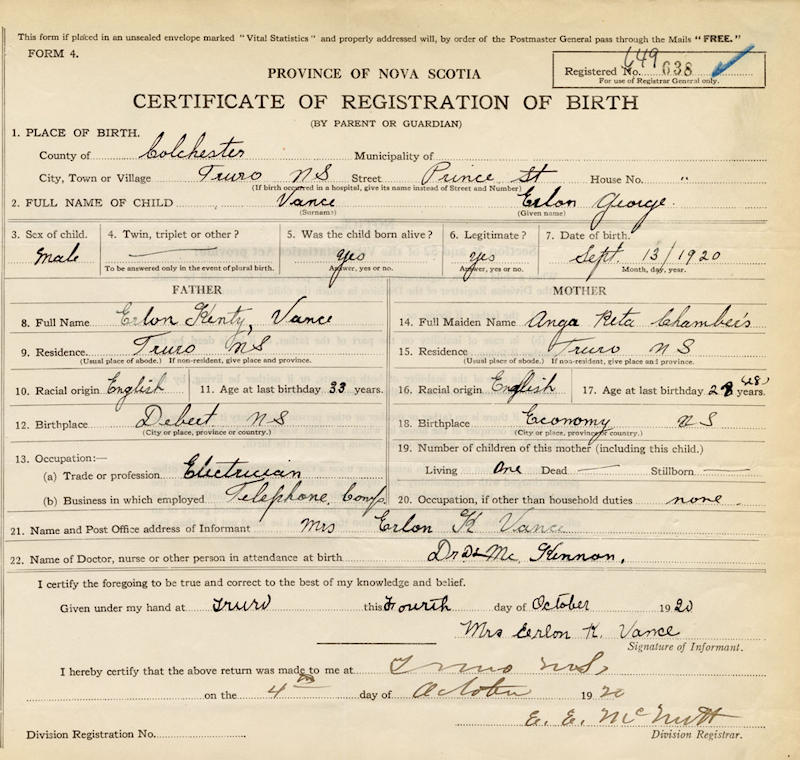 This form if placed in an unsealed envelope marked "Vital Statistics" and properly addressed will, by order of the Postmaster General pass through the Mails "FREE."
FORM 4.
649
Registered No. 638
For use of Registrar General only.
PROVINCE OF NOVA SCOTIA
CERTIFICATE OF REGISTRATION OF BIRTH
(BY PARENT OR GUARDIAN)
1. PLACE OF BIRTH.
County of Colchester Municipality of
City, Town or Village Truro NS Street Prince St House No. "
(If birth occurred in a hospital, give its name instead of Street and Number)
2. FULL NAME OF CHILD Vance Erlon George.
(Surname) (Given name)
3. Sex of child. 4. Twin, triplet or other? 5. Was the child born alive? 6. Legitimate? 7. Date of birth.
Male yes yes Sept. 13/1920
To be answered only in the event of plural birth. Answer, yes or no. Answer, yes or no. Month, day, year.
FATHER
8. Full Name Erlon Kenty, Vance
9. Residence Truro NS
(Usual place of abode.) If non-resident, give place and province.
10. Racial origin English 11. Age at last birthday 33 years.
12. Birthplace Debert NS
(City or place, province or country.)
13. Occupation:—
(a) Trade or profession Electrician
(b) Business in which employed Telephone Comp.
MOTHER
14. Full Maiden Name Anga Reta Chambers
15. Residence Truro NS
(Usual place of abode.) If non-resident, give place and province.
16. Racial origin English 17. Age at last birthday 28 (28) years.
18. Birthplace Economy NS
(City or place, province or country.)
19. Number of children of this mother (including this child.)
Living One Dead — Stillborn —
20. Occupation, if other than household duties none.
21. Name and Post Office address of Informant Mrs Erlon K Vance
22. Name of Doctor, nurse or other person in attendance at birth Dr Mc Kennon.
I certify the foregoing to be true and correct to the best of my knowledge and belief.
Given under my hand at Truro this Fourth day of October 1920
Mrs Eerlon K. Vance
Signature of Informant.
I hereby certify that the above return was made to me at Truro NS.
on the 4th day of October 1920
E. E. McNutt
Division Registrar.
Division Registration No.